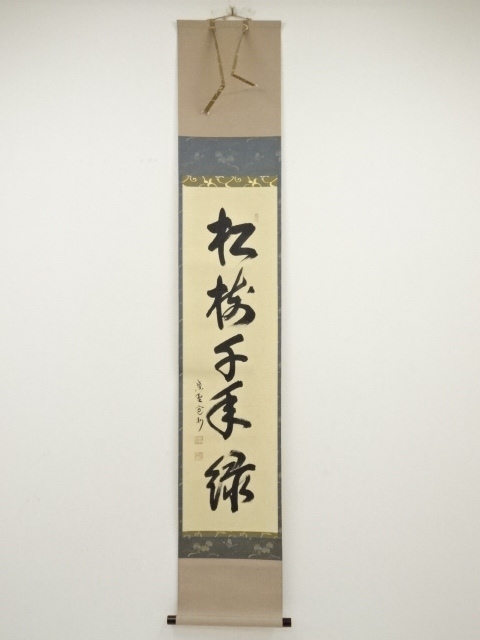 松樹千年緑